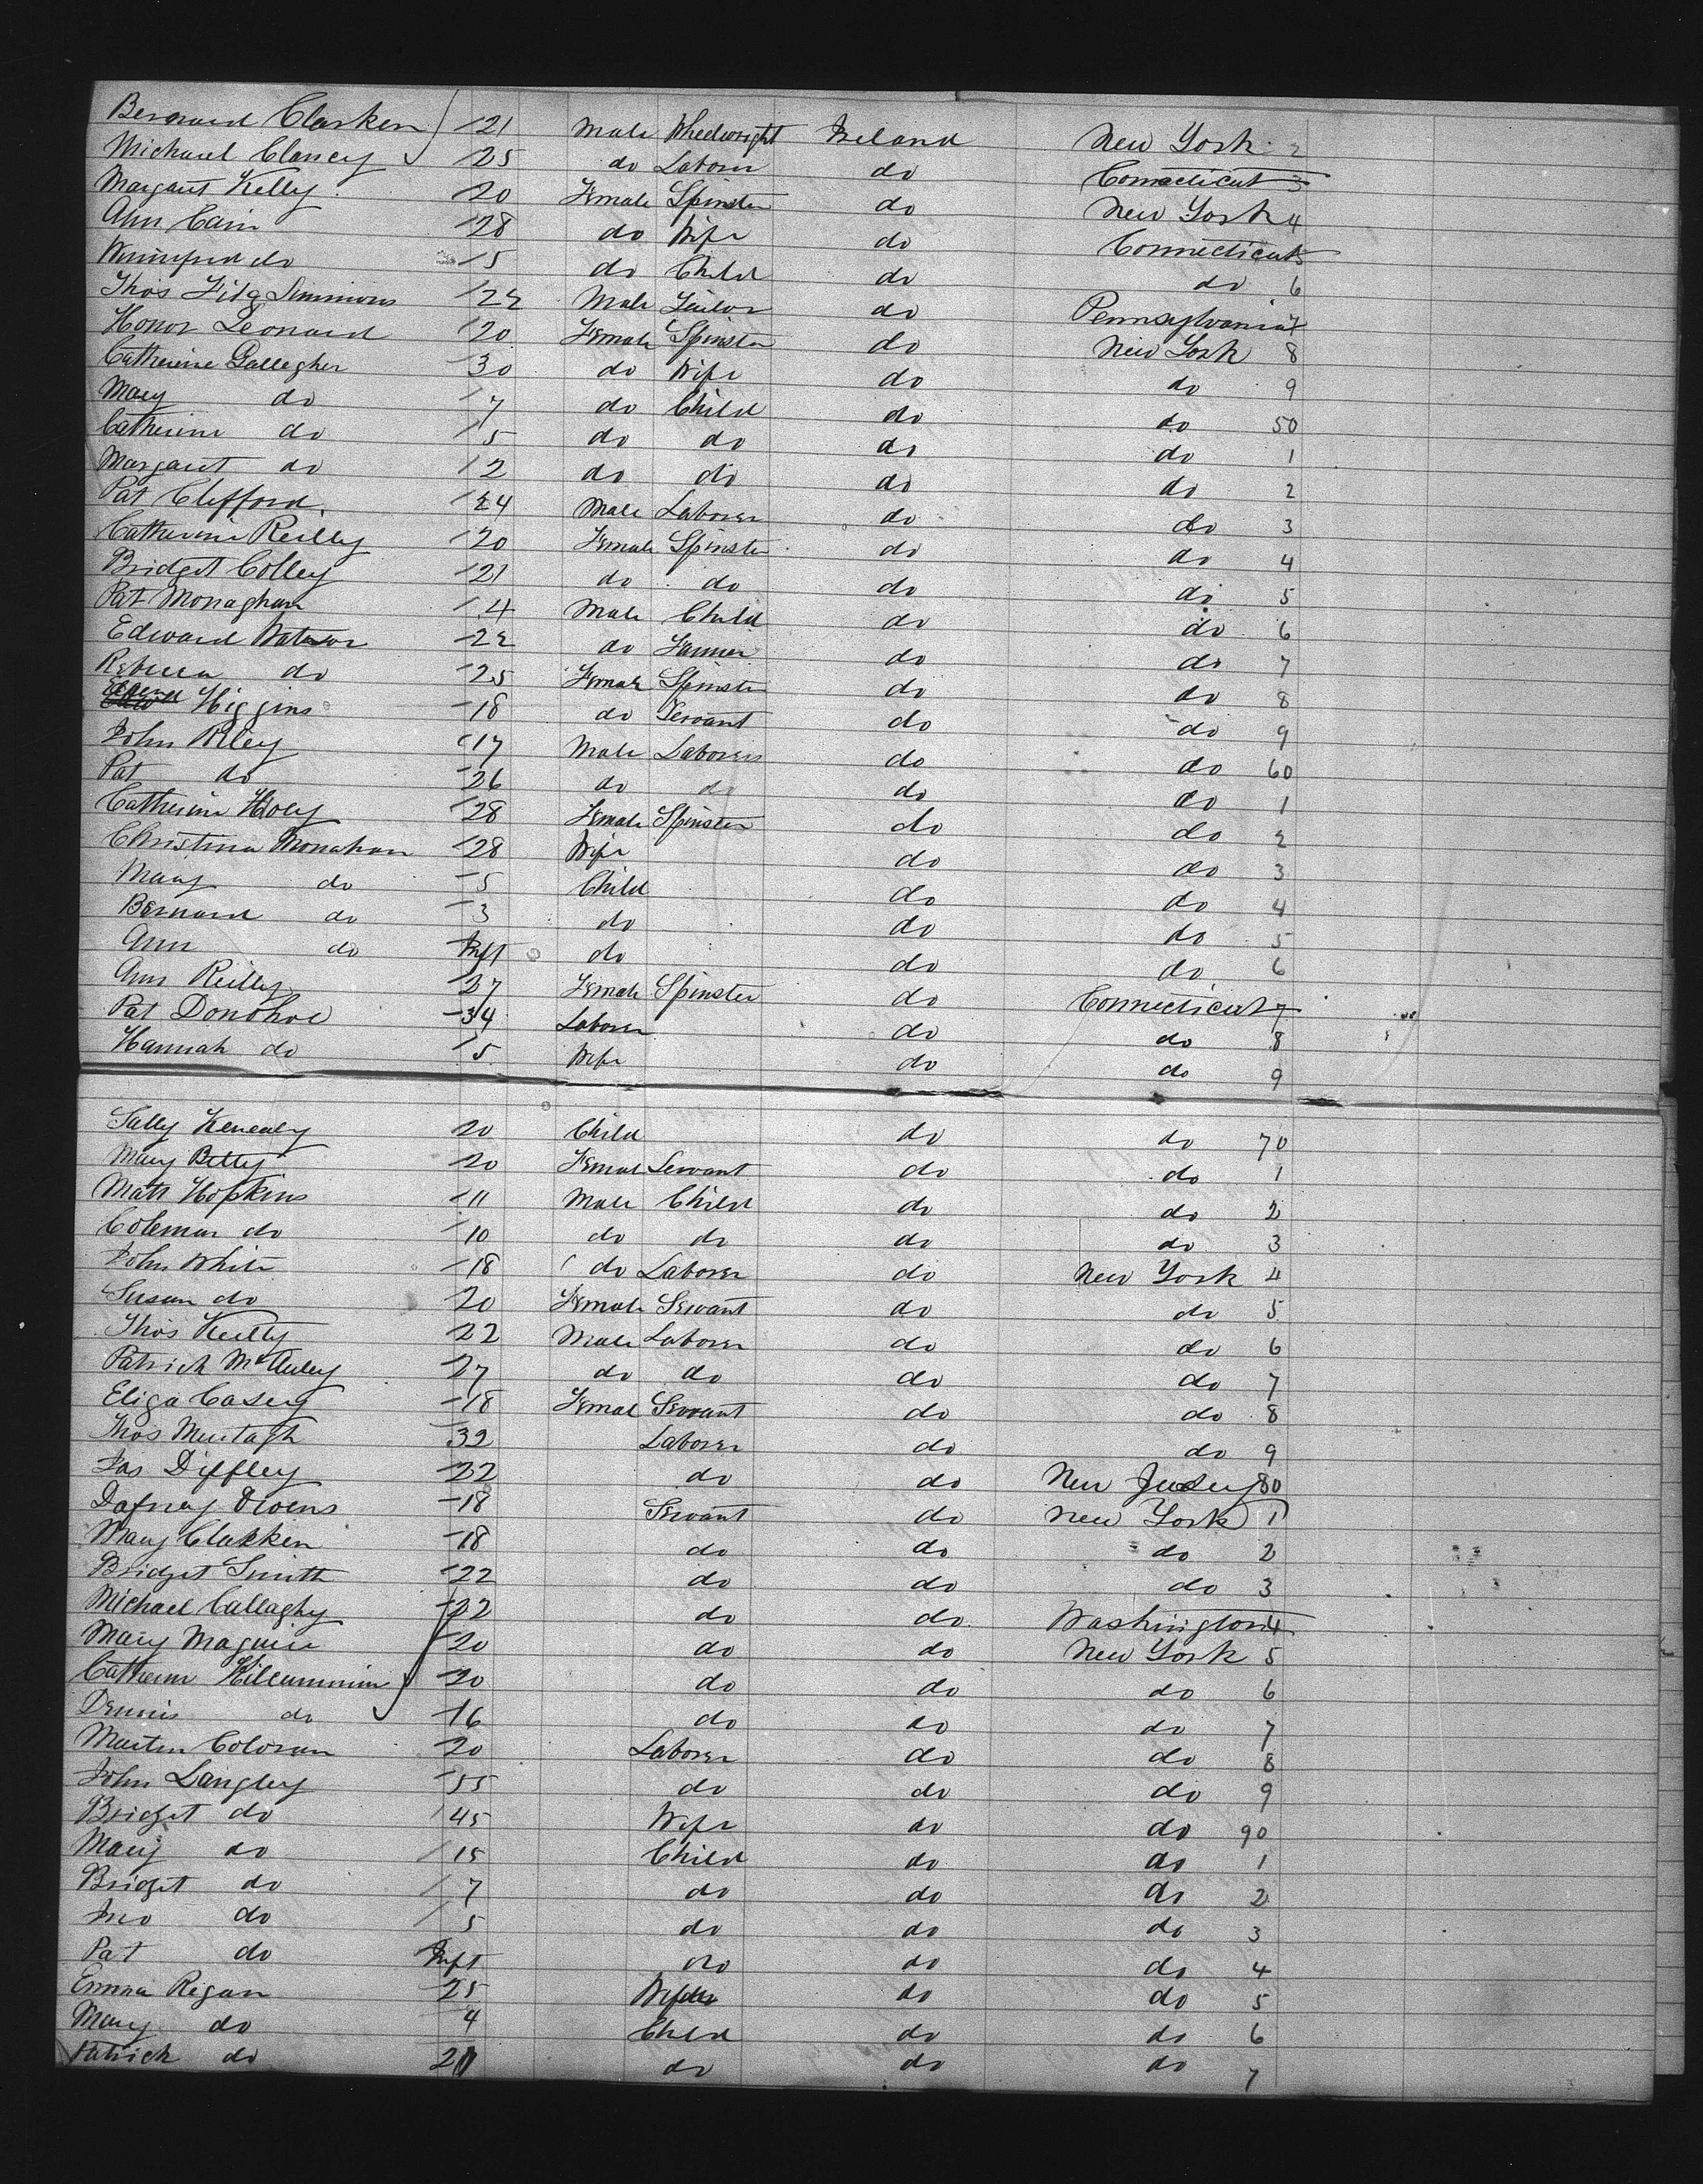 Bernard Clarken 21 Male Wheelwright Ireland New York 2
Michael Clancy 25 do Laborer do Connecticut 3
Margaret Kelly 20 Female Spinster do New York 4
Ann Cain 28 do Wife do Connecticut 5
Winnifred do 5 do Child do do 6
Thos Fitz Simmons 22 Male Tailor do Pennsylvania 7
Honor Leonard 20 Female Spinster do New York 8
Catherine Gallegher 30 do Wife do do 9
Mary do 7 do Child do do 50
Catherine do 5 do do do do 1
Margaret do 2 do do do do 2
Pat Clifford 24 Male Laborer do do 3
Catherine Reilly 20 Female Spinster do do 4
Bridget Colley 21 do do do do 5
Pat Monaghan 4 Male Child do do 6
Edward 22 do Farmer do do 7
Rebecca do 25 Female Spinster do do 8
Higgins 18 do Servant do do 9
John Riley 17 Male Laborers do do 60
Pat do 26 do do do do 1
Catherine Hoey 28 Female Spinster do do 2
Christina Monahan 28 Wife do do 3
Mary do 5 Child do do 4
Bernard do 3 do do do 5
Ann do Inft do do do 6
Ann Reilly 27 Female Spinster do Connecticut 7
Pat Donohoe 34 Laborer do do 8
Hannah do 5 Wife do do 9
Sally Kenealy 20 Child do do 70
Mary Betty 20 Femal Servant do do 1
Matt Hopkins 11 Male Child do do 2
Coleman do 10 do do do do 3
John White 18 do Laborer do New York 4
Susan do 20 Female Servant do do 5
Thos Kelly 22 Male Laborer do do 6
Patrick McAuley 27 do do do do 7
Eliza Casey 18 Femal Servant do do 8
Thos Murtagh 32 Laborer do do 9
Jas Diffley 22 do do New Jersey 80
Dafney Owens 18 Servant do New York 1
Mary Clarken 18 do do do 2
Bridget Smith 22 do do do 3
Michael Callaghy 22 do do Washington 4
Mary Maguire 20 do do New York 5
Catherine 20 do do do 6
Dennis do 16 do do do 7
Martin 20 Laborer do do 8
John Langley 55 do do do 9
Bridget do 45 Wife do do 90
Mary do 15 Child do do 1
Bridget do 7 do do do 2
Jno do 5 do do do 3
Pat do Inft do do do 4
Emma Regan 25 Wife do do 5
Mary do 4 Child do do 6
Patrick do do do do 7